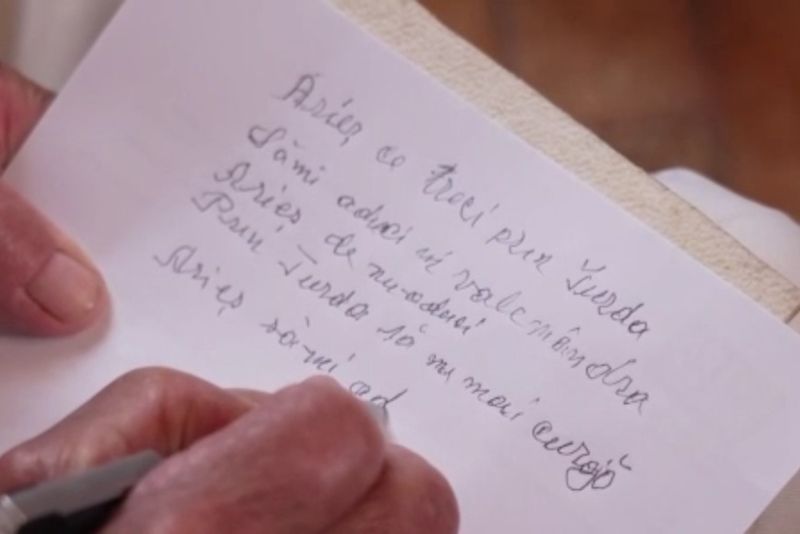 Arieș ce treci prin Turda
Sămi aduci un val
Arieș de nu-aduci
Prin Turda să nu mai curgă
Arieș să-mi ad